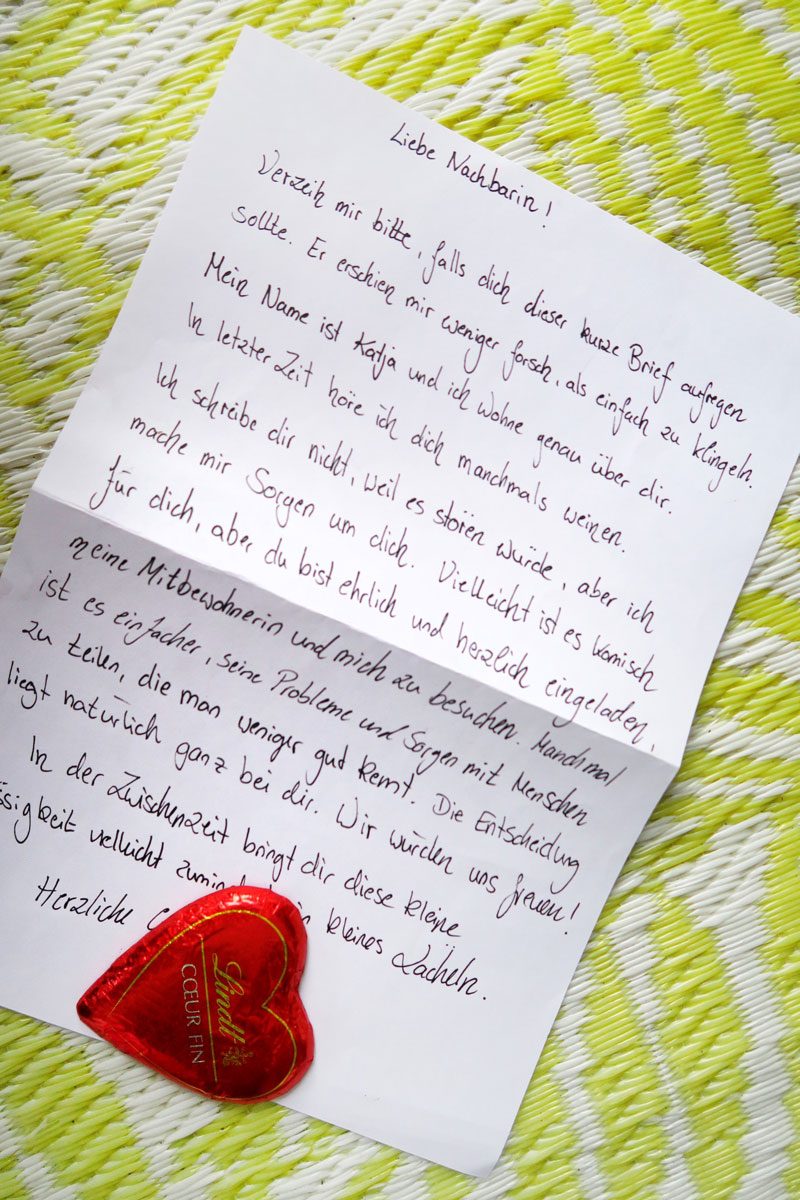 Liebe Nachbarin!
Verzeih mir bitte, falls dich dieser kurze Brief aufregen
sollte. Er erschien mir weniger forsch, als einfach zu klingeln.
Mein Name ist Katja und ich wohne genau über dir.
In letzter Zeit höre ich dich manchmals weinen.
Ich schreibe dir nicht, weil es stören würde, aber ich
mache mir Sorgen um dich. Vielleicht ist es komisch
für dich, aber du bist ehrlich und herzlich eingeladen,
meine Mitbewohnerin und mich zu besuchen. Manchmal
ist es einfacher, seine Probleme und Sorgen mit Menschen
zu teilen, die man weniger gut kennt. Die Entscheidung
liegt natürlich ganz bei dir. Wir würden uns freuen!
In der Zwischenzeit bringt dir diese kleine
ssigkeit vielleicht kleines Lächeln.
Herzliche
Lindt
CŒUR FIN